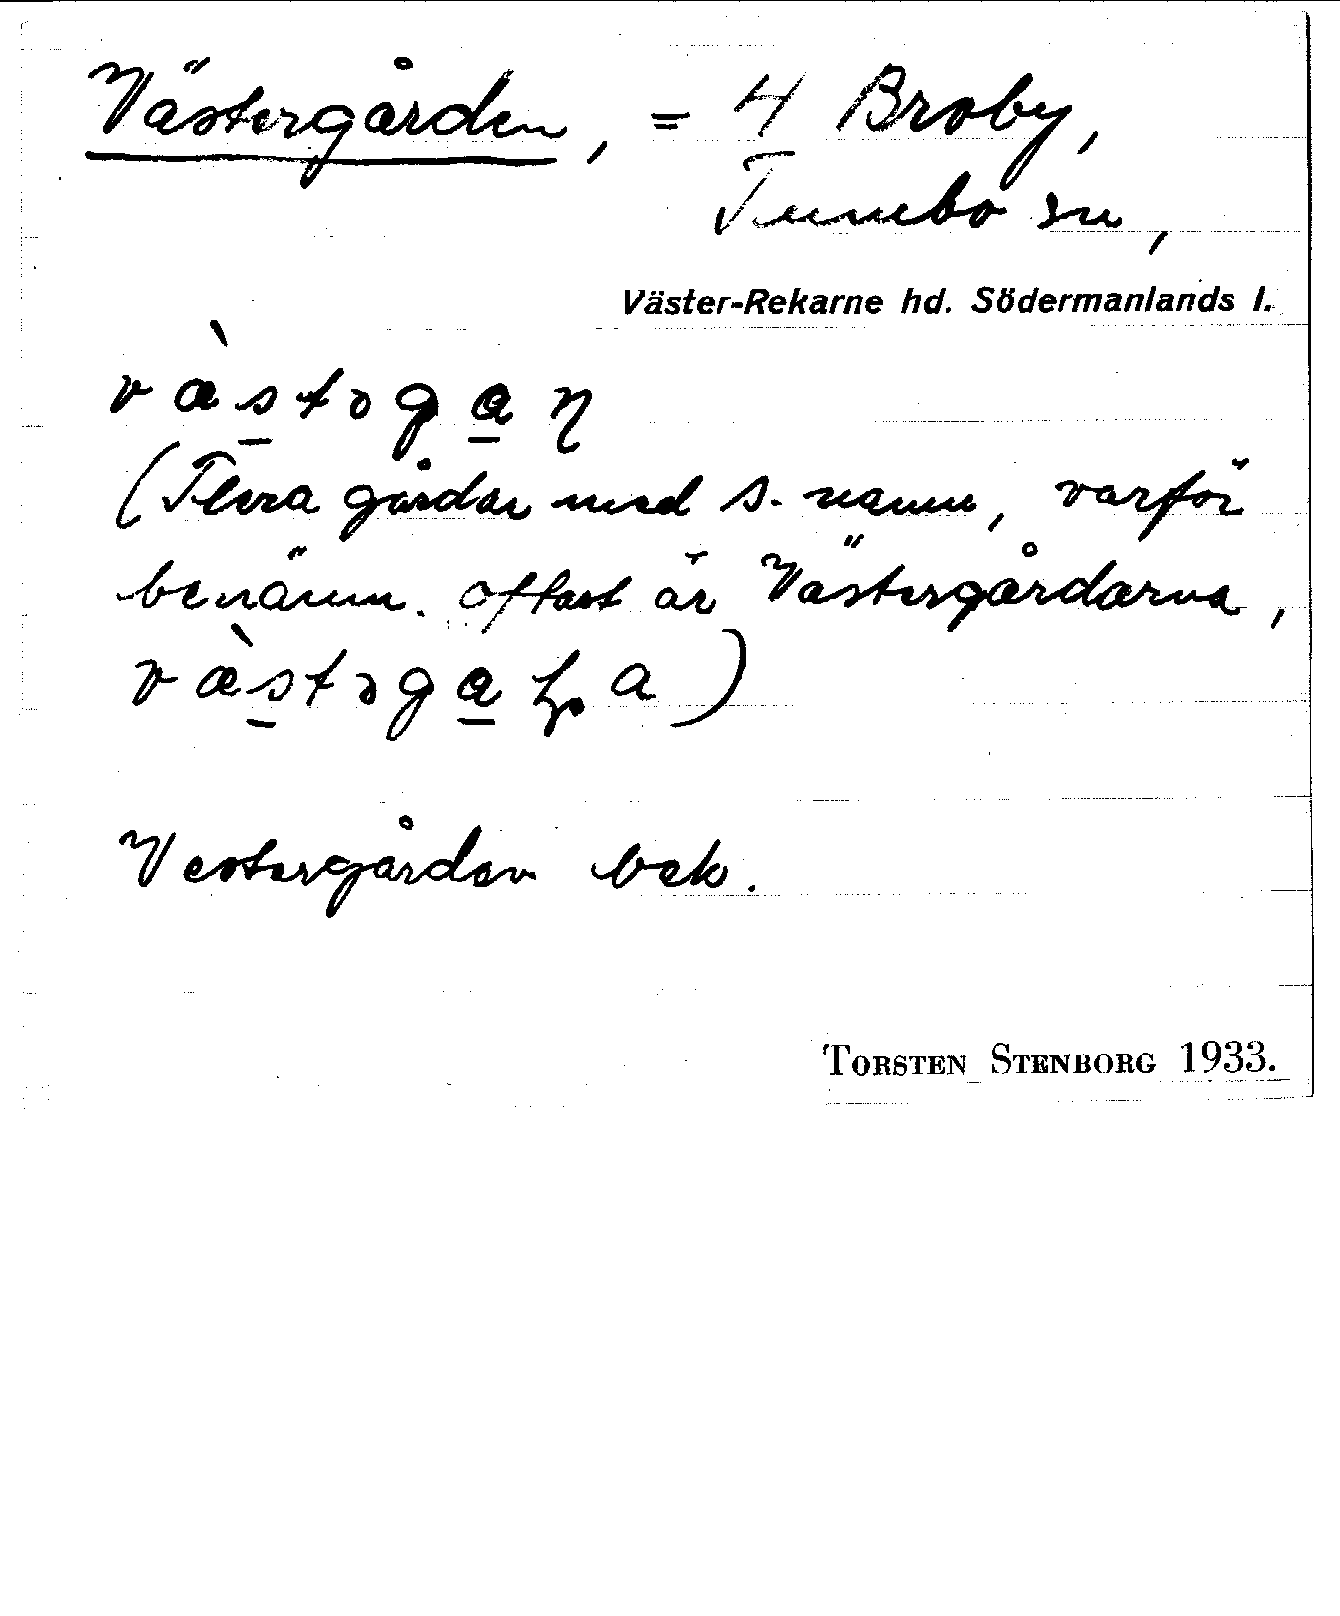 Västergården, = 4 Broby,
Tumbo sn,
Väster-Rekarne hd. Södermanlands l.
væ̀stəgaɳ
(Flera gårdar med s. namn, varför
benämn. oftast är Västergårdarna,
væ̀stəgaɽa)
Vestergården bek.
TORSTEN STENBORG 1933.